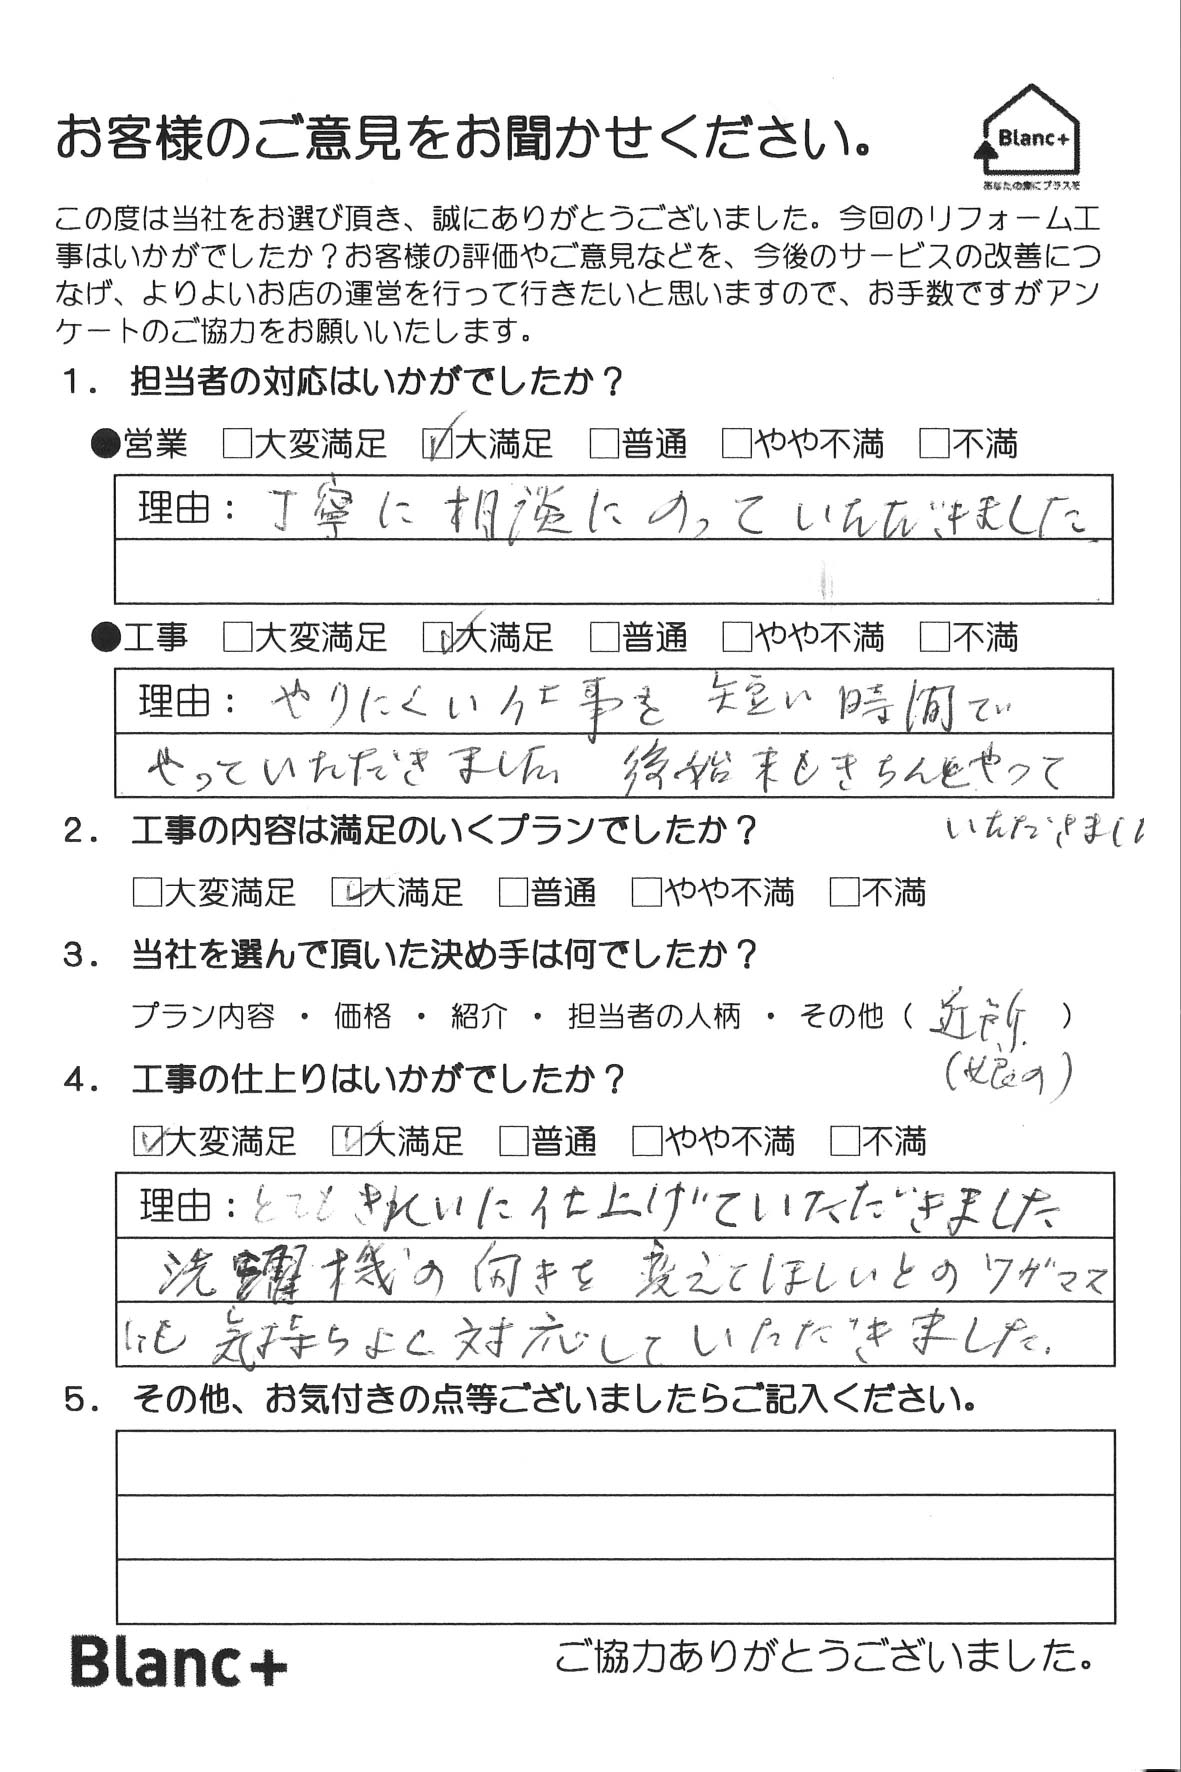 お客様のご意見をお聞かせください。
Blanc+
あなたの家にプラスを
この度は当社をお選び頂き、誠にありがとうございました。今回のリフォーム工
事はいかがでしたか？お客様の評価やご意見などを、今後のサービスの改善につ
なげ、よりよいお店の運営を行って行きたいと思いますので、お手数ですがアン
ケートのご協力をお願いいたします。
１．　担当者の対応はいかがでしたか？
●営業　□大変満足　☑大満足　□普通　□やや不満　□不満
理由：丁寧に相談にのっていただきました
●工事　□大変満足　☑大満足　□普通　□やや不満　□不満
理由：やりにくい仕事を短い時間で
やっていただきました。後始末もきちんとやって
いただきました
２．　工事の内容は満足のいくプランでしたか？
□大変満足　☑大満足　□普通　□やや不満　□不満
３．　当社を選んで頂いた決め手は何でしたか？
プラン内容 ・ 価格 ・ 紹介 ・ 担当者の人柄 ・ その他（ 近所. ）
(娘の)
４．　工事の仕上りはいかがでしたか？
☑大変満足　☑大満足　□普通　□やや不満　□不満
理由：とてもきれいに仕上げていただきました
洗濯機の向きを変えてほしいとのワガママ
にも気持ちよく対応していただきました.
５．　その他、お気付きの点等ございましたらご記入ください。
Blanc+
ご協力ありがとうございました。